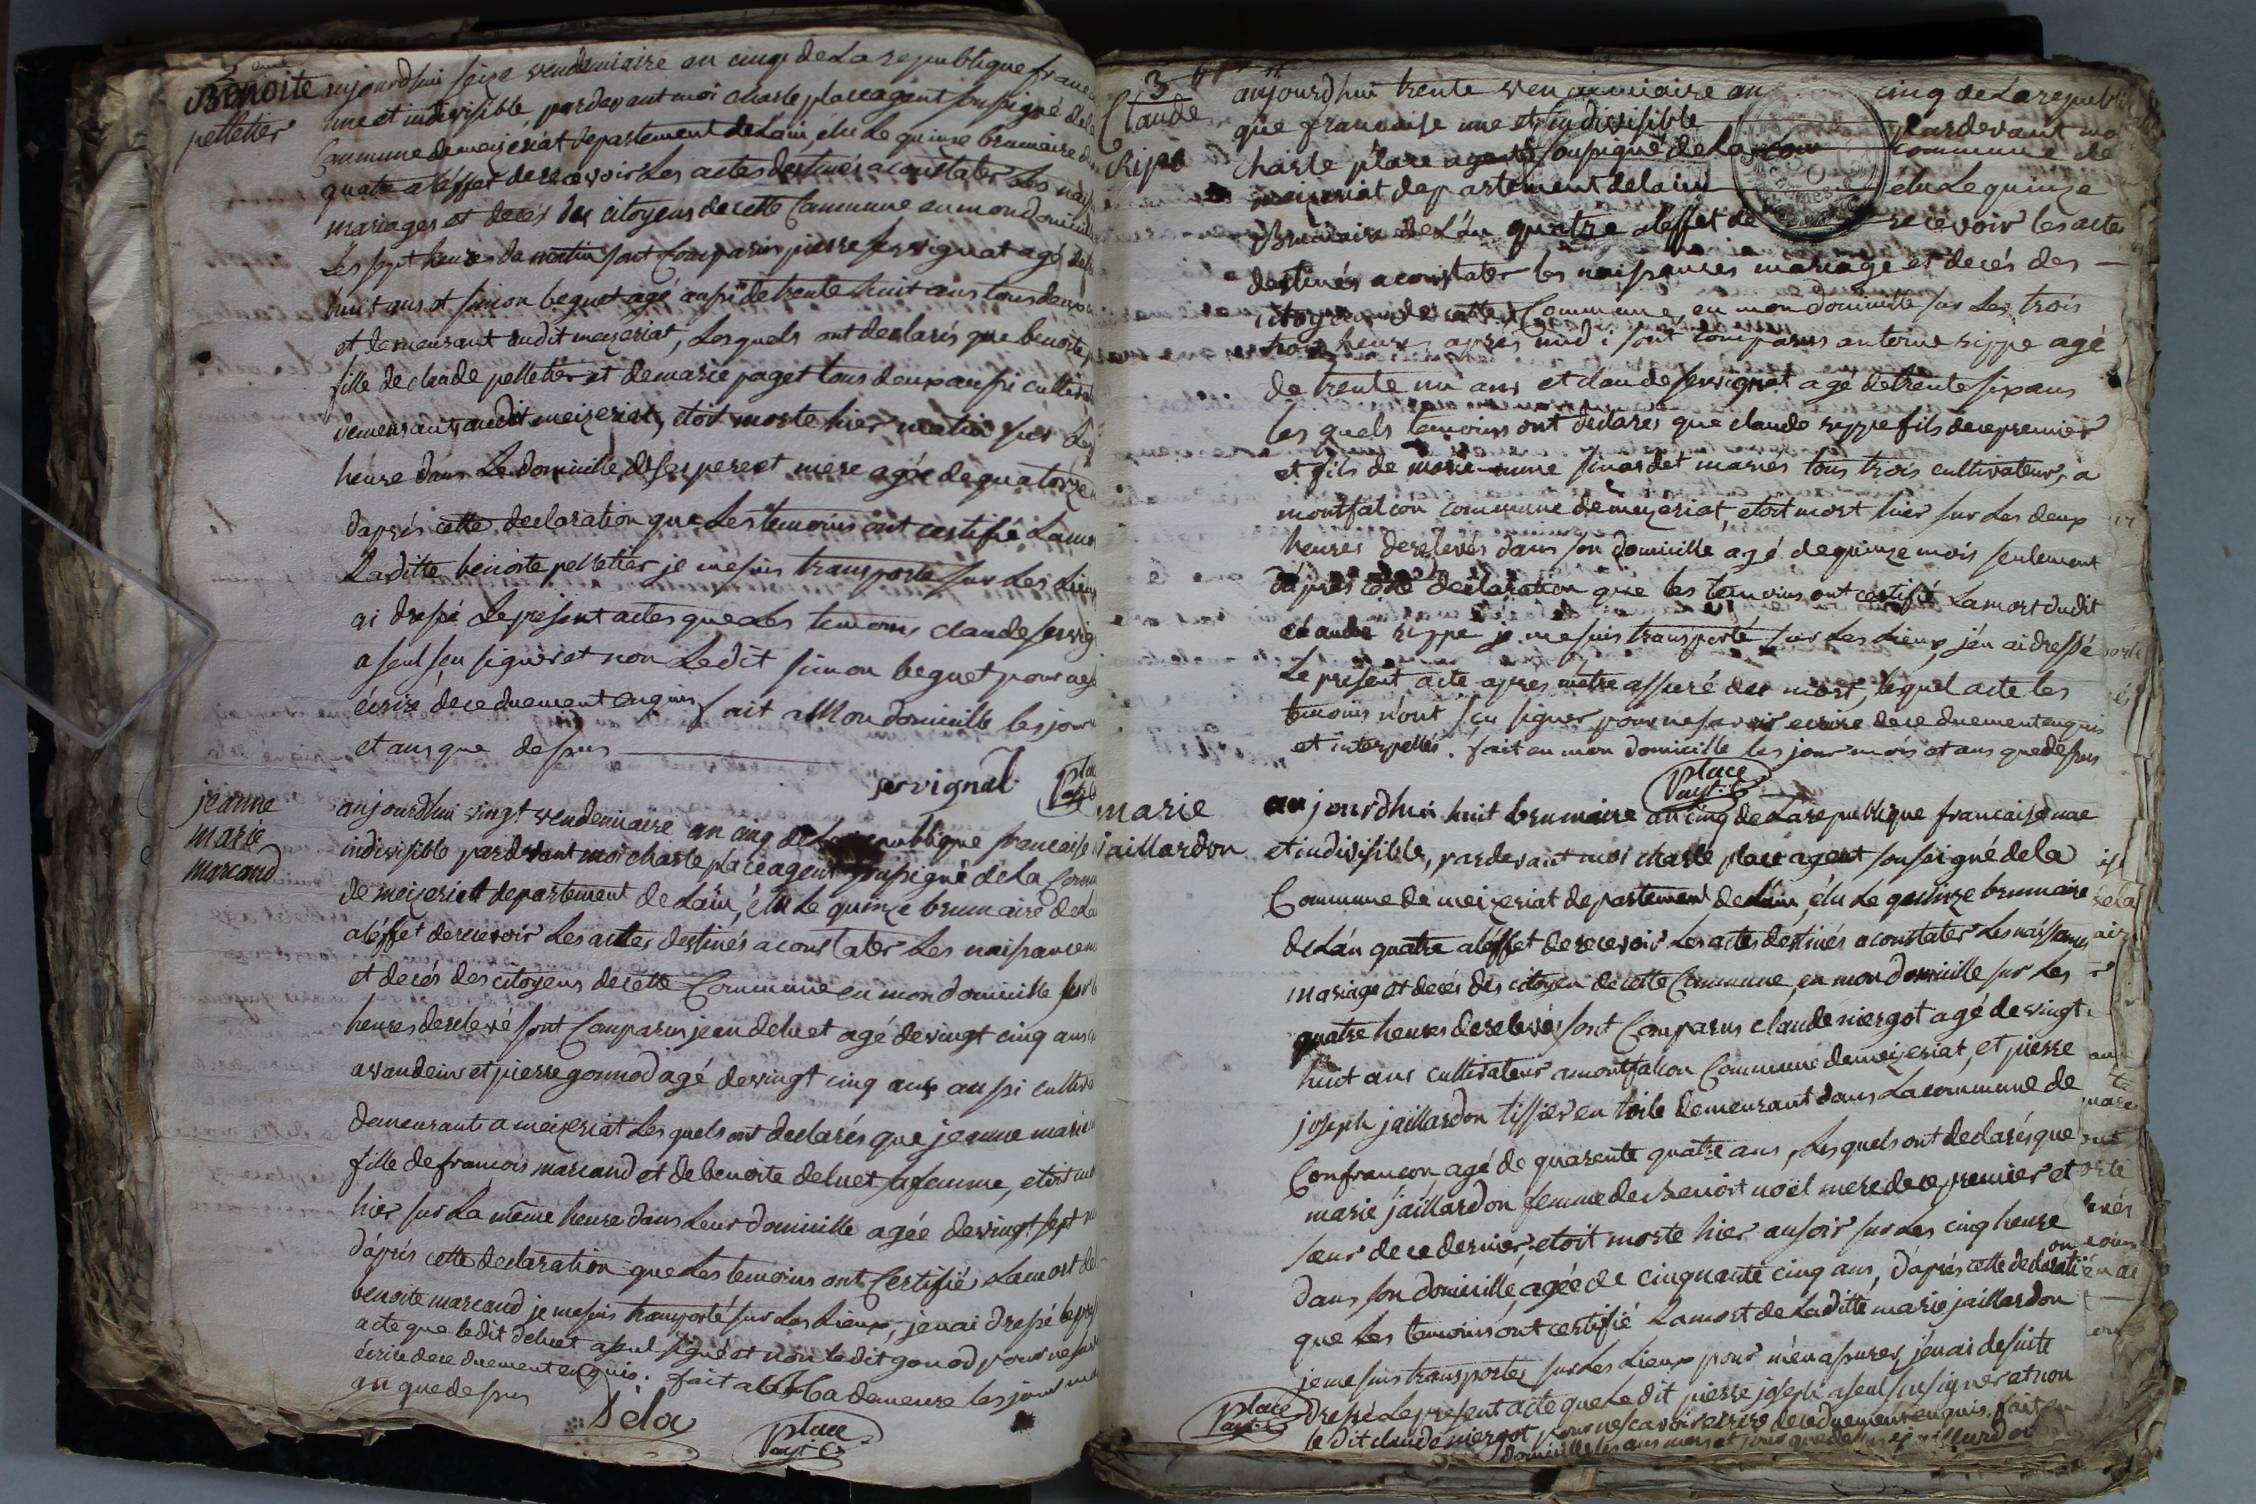 Benoite
pelletier
aujourdhui seize vendemiaire an cinq de La republique franc
une et indivisible, pardevant moi charle place agent soussigné de la
Commune de meizeriat departement de Lain, élu Le quinze brumaire
quatre a léffet de recevoir Les actes destinés a constater Les nais
mariages et decés des citoyens de cette Commune en mon domicile
Les sept heures du matin sont Comparus pierre servignat agé
huit ans et simon beguet agé aussi de trente huit ans tous deux
et demeurant audit meizeriat, Lesquels ont declarés que benoite
fille de claude pelletier et de marie paget tous deux aussi cultiva
demeurant audit meizeriat, étoit morte hier matin sur Les
heure dans Le domicille de ses pere et mere agée de quatorze
daprés cette declaration que Les temoins ont certifié La mo
Laditte benoite pelletier je me suis transporté sur Les Lieux
ai dressé Le present actes que Les temoins claude servig
a seul seu signer et non Ledit simon beguet pour ne s
écrire de ce duement enquis fait a Mon domicille les jour
et ans que dessus
servignat
place
agt
jeanne
marie
marcand
aujourdhui vingt vendemiaire an cinq de La republique francaise
indivisible pardevant moi charle place agent soussigné de La Comm
de meizeriat departement de Lain, élu Le quinze brumaire de La
a léffet de recevoir Les actes destinés a constater Les naissances
et decés des citoyens de cette Commune en mon domicille sur
heures de relevé sont Comparus jean deluet agé de vingt cinq ans
a vandeins et pierre gonnod agé de vingt cinq ans aussi cultiva
demeurant a meizeriat Les quels ont declarés que jeanne marie
fille de francois marcand et de benoite deluet sa femme, etoit
hier sur La même heure dans Leur domicille agée de vingt sept
dáprés cette declaration que Les temoins ont Certifié La mort de
benoite marcand je me suis transporté sur Les Lieux, jen ai dressé le pres
acte que le dit deluet a seul signé et non le dit gonod pour ne sav
écrire de ce duement enquis. fait a La demeure les jour
an que dessus
Dela
place
agt
3
Claude
Ripe
aujourdhui trente vendemiaire an cinq de La republi
que francaise une et indivisible pardevant mo
charle place agent soussigné de La commune de
meizeriat departement de lain élu Le quinze
Brumaire de Lán quatre a leffet de recevoir les actes
destinés a constater les naissances mariage et décés des
citoyens de cette Commune, en mon domicille sur Les trois
trois heure, aprés midi sont comparus antoine rippe agé
de trente un ans et claude servignat agé de trente six ans
les quels temoins ont declarés que claude rippe fils de ce premier
et fils de marie anne sinardet mariés tous trois cultivateurs a
montfalcon commune de meizeriat, etoit mort hier sur Les deux
heures de relevés dans son domicille agé de quinze mois seulement
daprés cette declaration que les temoins ont certifié La mort dudit
claude rippe je me suis transporté sur Les Lieux, jén ai dressé
Le présent acte apres mêtre assuré de mort, lequel acte les
temoins n'ont sçu signer pour ne savoir ecrire de ce duement enquis
et interpellés. fait en mon domicille les jour mois et ans que dessus
place
agt
marie
jaillardon
aujourdhui huit brumaire an cinq de La republique francaise une
et indivisible, pardevant moi charle place agent soussigné de la
Commune de meizeriat departement de Lain, élu Le quinze brumaire
de Lán quatre a léffet de recevoir Les actes destinés a constater Les naissances
mariage et decés des citoyen de cette Commune, en mon domicille sur Les
quatre heures de relevés sont Comparus claude niergot agé de vingt
huit ans cultivateur a montfalcon Commune de meizeriat, et pierre
joseph jaillardon tissier en toile demeurant dans La commune de
Confrancon, agé de quarente quatre ans, Lesquels ont declarés que
marie jaillardon femme de Benoit noël mere de ce premier et
sœur de ce dernier, etoit morte hier au soir sur Les cinq heure
dans son domicille, agée de cinquante cinq ans, dáprés cette declaration
que Les temoins ont certifié La mort de Laditte marie jaillardon
je me suis transporter sur Les Lieux pour mén assurer, jén ai de suite
dressé Le present acte que Le dit pierre joseph a seul su signer et non
le dit claude niergot pour ne scavoir ecrire de ce duement enquis. fait en
domicille les ans mois et jour que dessus jaillardon
place
agt